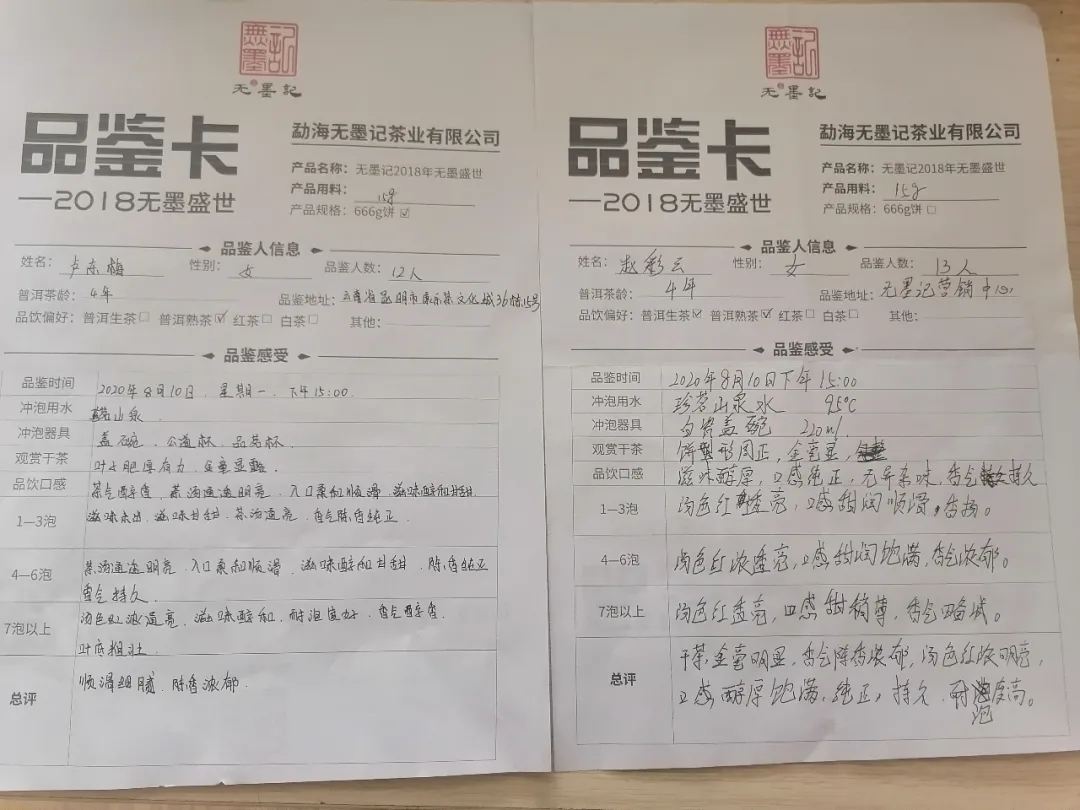 無墨記
无墨記
品鉴卡
—2018无墨盛世
勐海无墨记茶业有限公司
产品名称：无墨记2018年无墨盛世
产品用料：15g
产品规格：666g饼☑
品鉴人信息
姓名：卢东梅 性别：女 品鉴人数：12人
普洱茶龄：4年 品鉴地址：云南省昆明市康乐茶文化城36栋15号
品饮偏好：普洱生茶□ 普洱熟茶☑ 红茶□ 白茶□ 其他：
品鉴感受
品鉴时间 2020年8月10日．星期一．下午15:00．
冲泡用水 山泉．
冲泡器具 盖碗．公道杯．品茗杯．
观赏干茶 叶片肥厚有力．金毫显露．
品饮口感 茶气醇香．茶汤通透明亮．入口柔和顺滑．滋味醇和甘甜．
1—3泡 滋味．滋味甘甜．茶汤透亮．香气陈香纯正．
4—6泡 茶汤通透明亮．入口柔和顺滑．滋味醇和甘甜．陈香纯正
香气持久．
7泡以上 汤色红浓透亮．滋味醇和．耐泡度好．香气醇香．
叶底粗壮
总评 顺滑细腻．陈香浓郁．
無墨記
无墨記
品鉴卡
—2018无墨盛世
勐海无墨记茶业有限公司
产品名称：无墨记2018年无墨盛世
产品用料：15g
产品规格：666g饼□
品鉴人信息
姓名：赵彩云 性别：女 品鉴人数：13人
普洱茶龄：4年 品鉴地址：无墨记营销中心
品饮偏好：普洱生茶☑ 普洱熟茶☑ 红茶□ 白茶□ 其他：
品鉴感受
品鉴时间 2020年8月10日下午15:00
冲泡用水 珍茗山泉水 95℃
冲泡器具 白瓷盖碗 220ml
观赏干茶 饼形周正，金毫显，
品饮口感 滋味醇厚，口感纯正，无异杂味，香气持久
1—3泡 汤色红透亮，口感甜润顺滑，香扬。
4—6泡 汤色红浓透亮，口感甜润饱满，香气浓郁。
7泡以上 汤色红透亮，口感甜稍薄，香气略减。
总评 干茶金毫明显，香气陈香浓郁，汤色红浓明亮，
口感醇厚饱满，纯正，持久．耐泡度高。